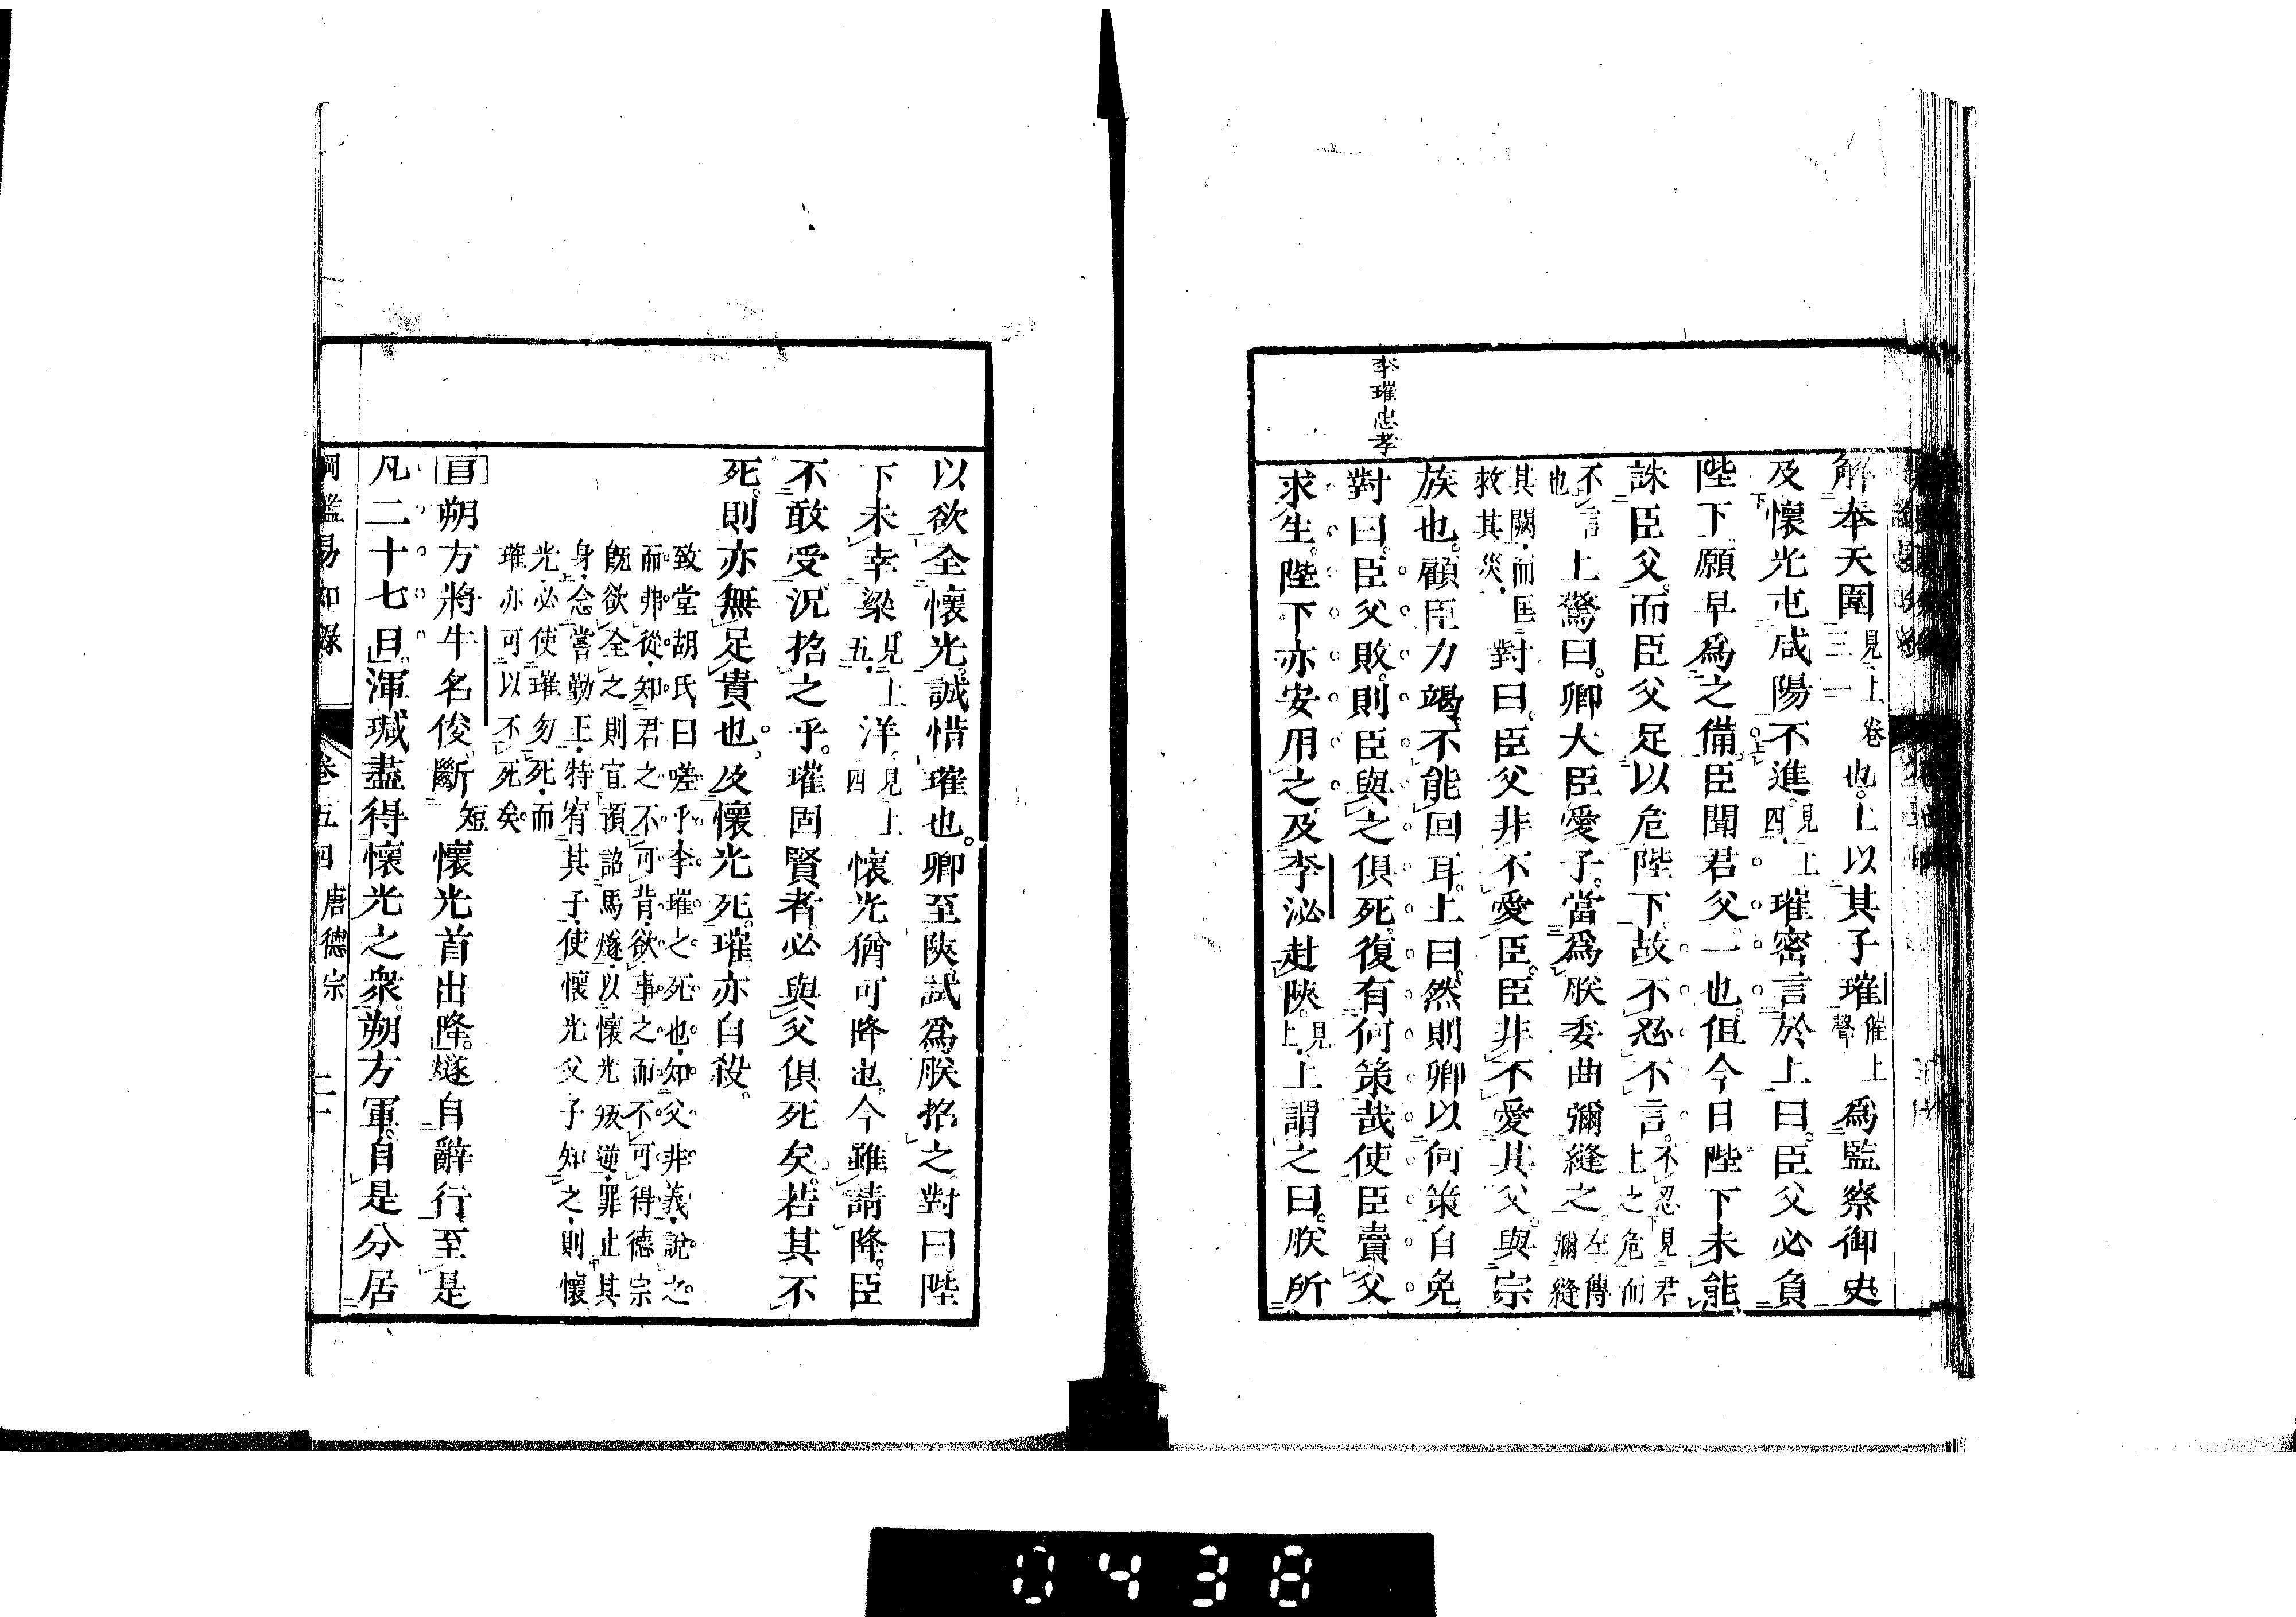 李璀忠孝
解奉天圍見上卷三一也。上以其子璀催上聲爲監察御史
及懷光屯咸陽不進。見上四璀密言於上曰。臣父必負
陛下願早爲之備。臣聞君父一也。但今日陛下未能
誅臣父。而臣父足以危陛下故不忍不言。不忍見君上之危而
不言也上驚曰。卿大臣愛子。當爲朕委曲彌縫之。左傳彌縫
其闕而匡救其災對曰。臣父非不愛臣。臣非不愛其父與宗
族也。顧臣力竭。不能回耳。上曰。然則卿以何策自免
對曰。臣父敗。則臣與之俱死。復有何策哉使臣賣父
求生。陛下亦安用之。及李泌赴陝。見上上謂之曰。朕所
以欲全懷光。誠惜璀也。卿至陝試爲朕招之。對曰。陛
下未幸梁見上五洋。見上四懷光猶可降也。今雖請降。臣
不敢受。況招之乎。璀固賢者。必與父俱死矣。若其不
死。則亦無足貴也。及懷光死。璀亦自殺。
致堂胡氏曰嗟乎李璀之死也知父非義說之
而非從知君之不可背欲事之而不可得德宗
既欲全之則宜預詔馬燧以懷光叛逆罪止其
身念嘗勤王特宥其子使懷光父子知之則懷
光必使璀勿死而
璀亦可以不死矣
目朔方將牛名俊斷短懷光首出降。燧自辭行至是
凡二十七日。渾瑊盡得懷光之衆。朔方軍。自是分居
綱鑑易知錄 卷五四 唐德宗 二一